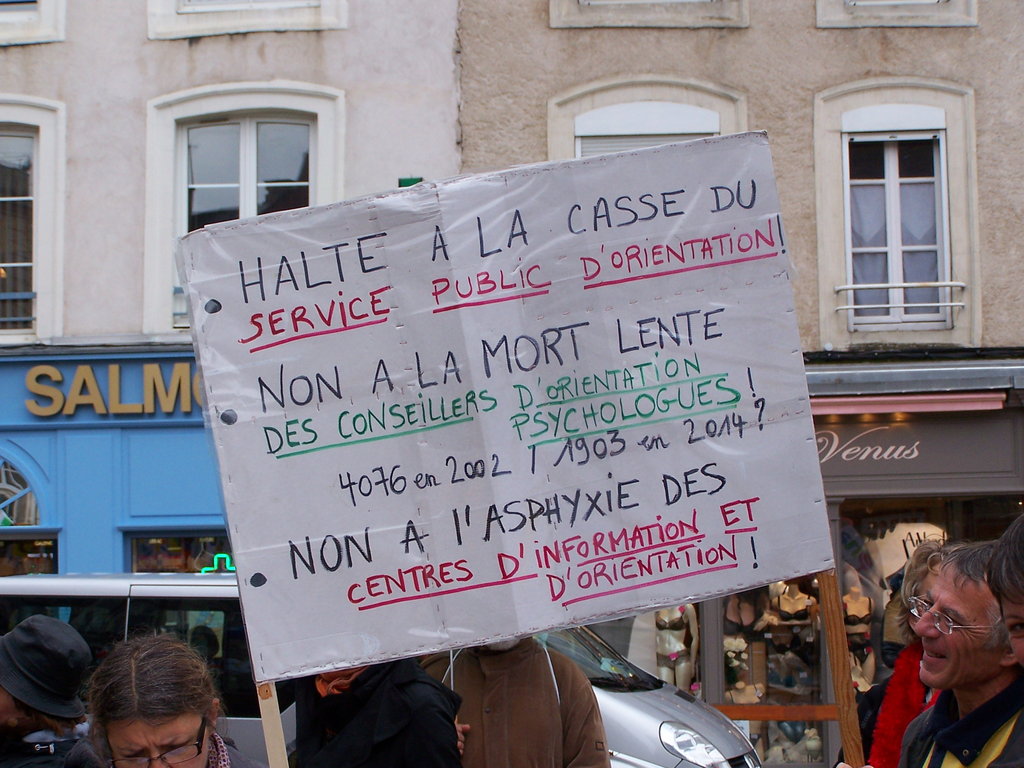 HALTE A LA CASSE DU
SERVICE PUBLIC D'ORIENTATION!
NON A LA MORT LENTE
DES CONSEILLERS D'ORIENTATION
PSYCHOLOGUES!
4076 en 2002 / 1903 en 2014?
NON A l'ASPHYXiE DES
CENTRES D'INFORMATION ET
D'ORIENTATION!
SALMO
Venus